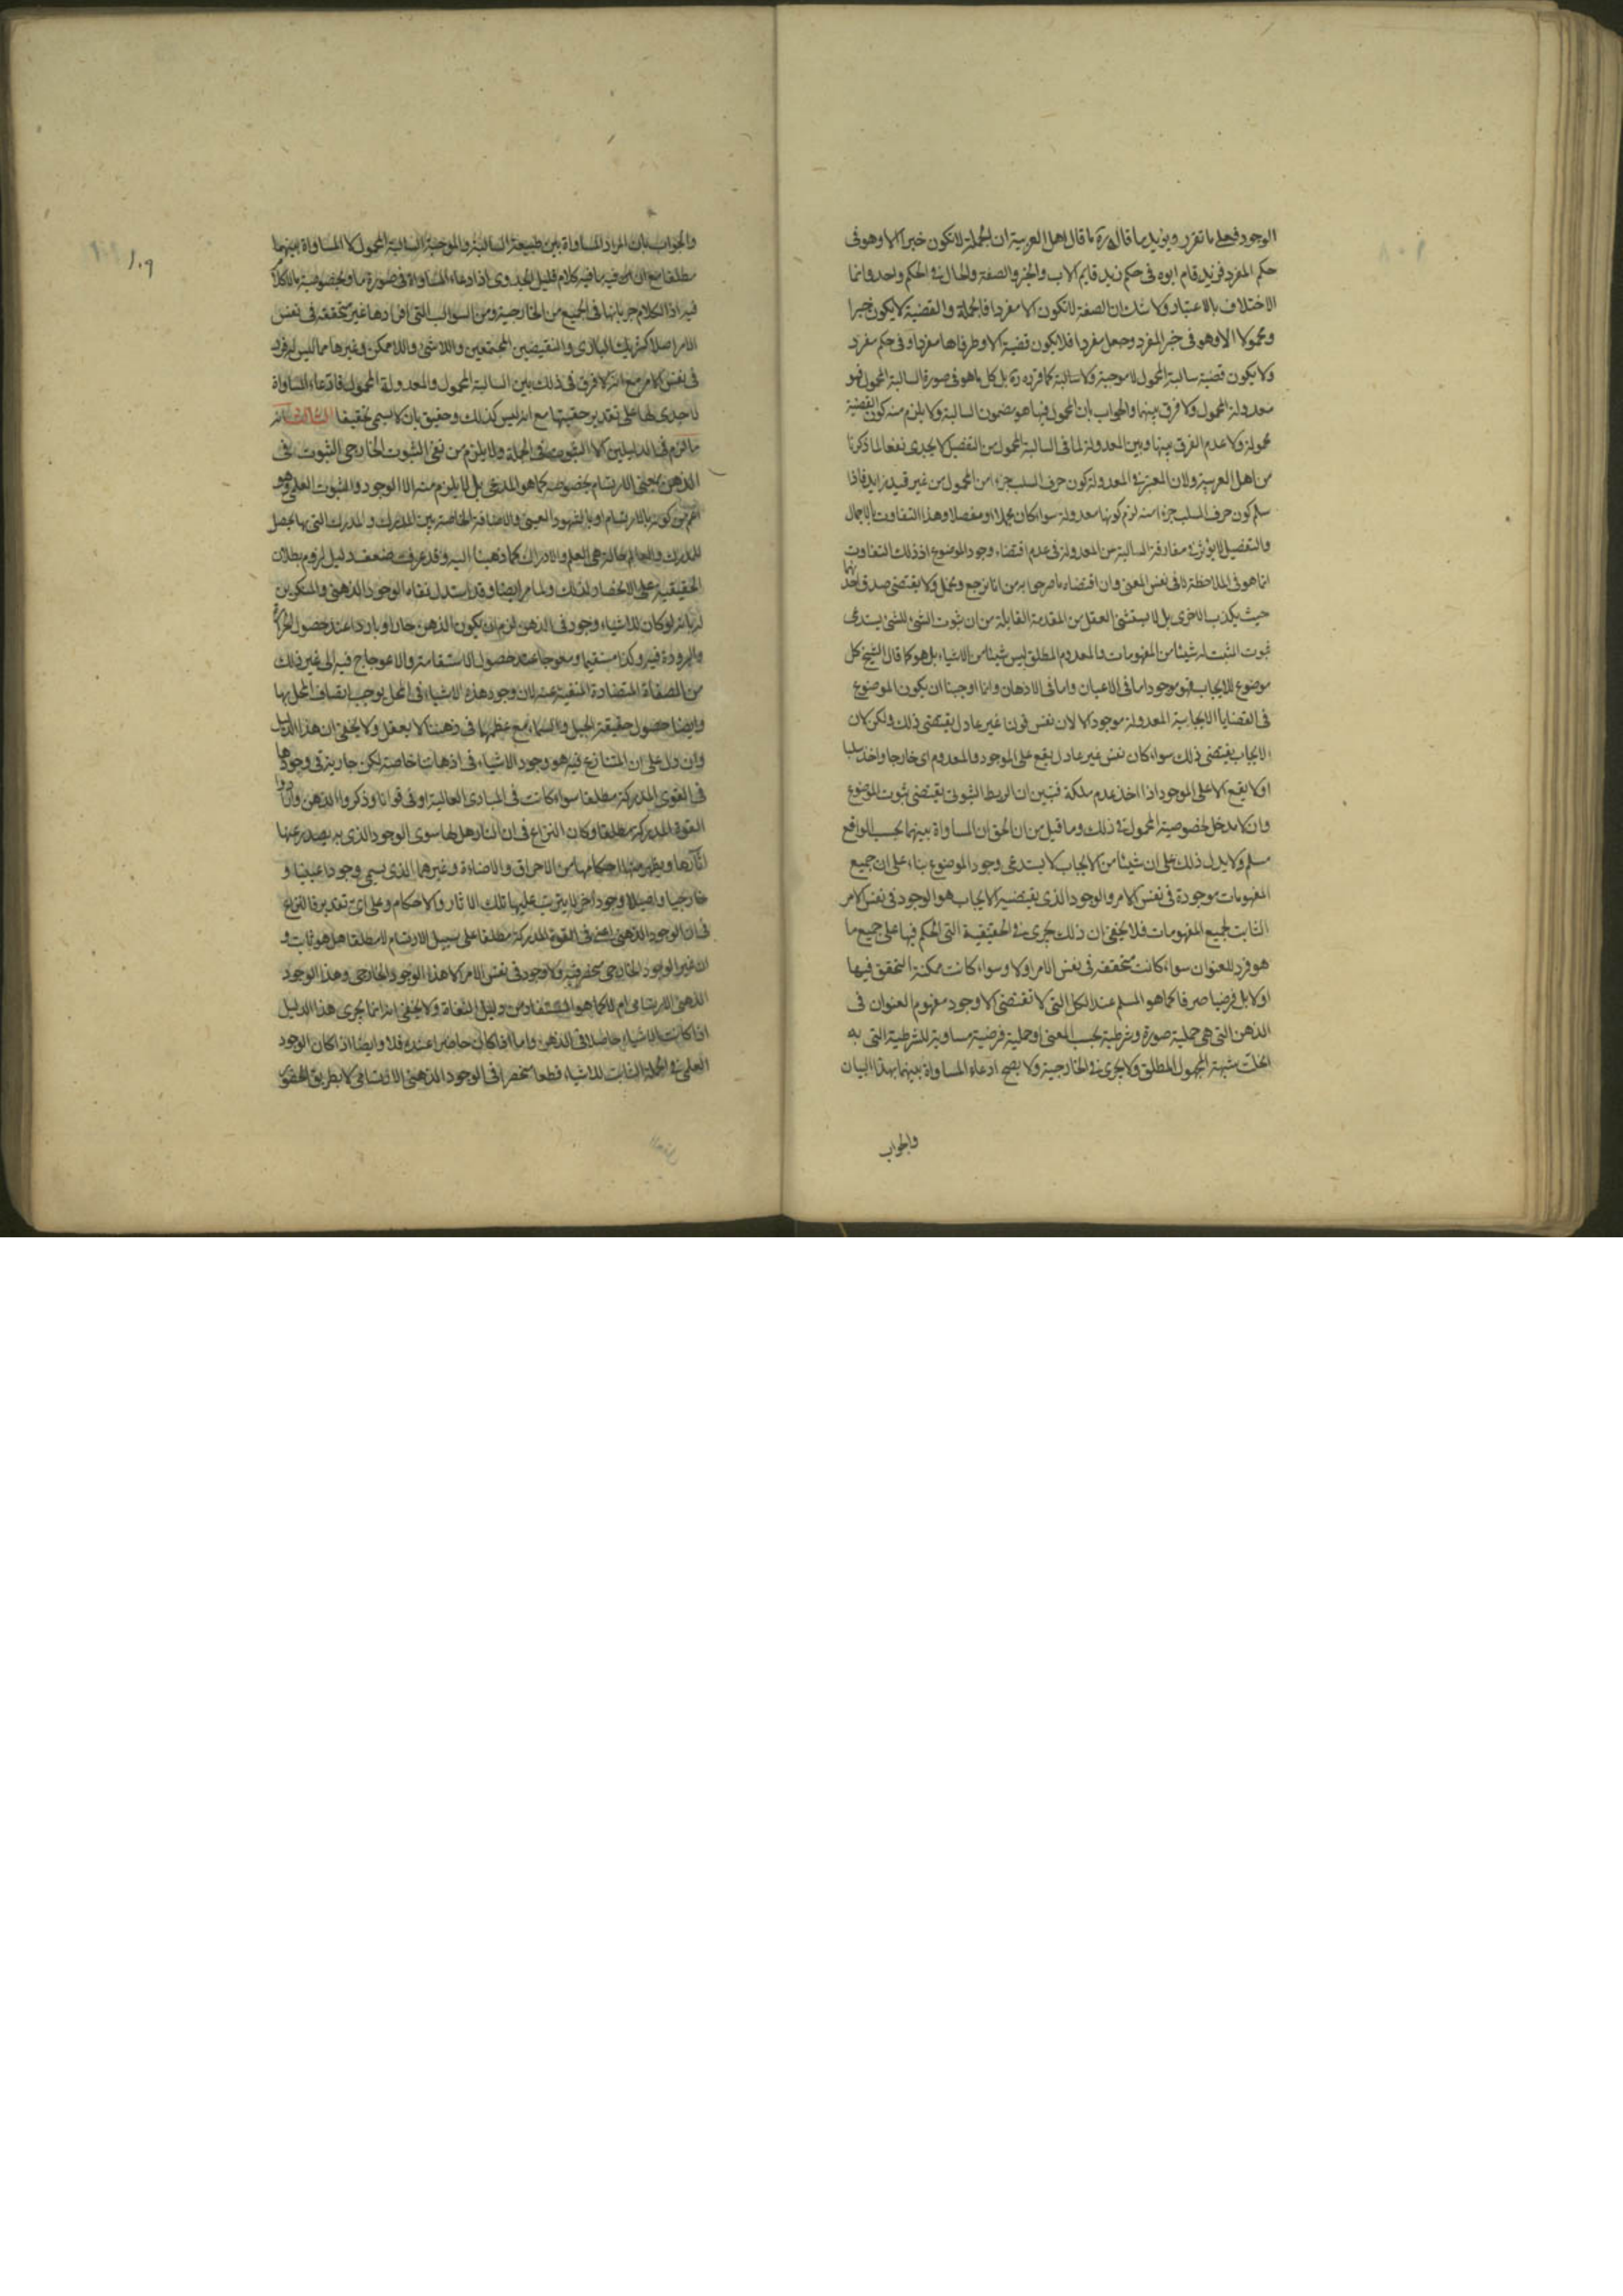 الوجود فعلى ما تقرر ويؤيد ما قاله ما قال اهل العربية ان الجملة لا تكون خبرا الا وهو فى
حكم المفرد فزيد قام ابوه فى حكم زيد قايم الاب والخبر والصفة والحال فى الحكم واحد وانما
الاختلاف بالاعتبار ولا شك ان الصفة لا تكون الا مفردا فالجملة والقضية لا يكون خبرا
ومحمولا الا وهو فى خبر المفرد وجعل مفردا فلا يكون قضية الا وطرفاها مفرد او فى حكم مفرد
ولا يكون قضية سالبة المحمول لا موجبة ولا سالبة كما قرره بل كل ما هو فى صورة السالبة المحمول فهو
معدولة المحمول ولا فرق بينهما والجواب بان المحمول فيها هو مضمون السالبة ولا يلزم منه كون القضية
محمولة ولا عدم الفرق بينها وبين المعدولة لما فى السالبة المحمول من التفصيل لا يجدى نفعا لما ذكرنا
من اهل العربية ولان المعتبر فى المعدولة كون حرف السلب جزء من المحمول من غير قيد زايد فاذا
سلم كون حرف السلب جزء منه لزم كونها معدولة سواء كان مجملا او مفصلا وهذا التفاوت بالاجمال
والتفصيل لا يؤثر فى مفارقة السالبة عن المعدولة فى عدم اقتضاء وجود الموضوع اذ ذلك التفاوت
انما هو فى الملاحظة لا فى نفس المعنى وان اقتضاء ما صرحوا به من انا نرجع ونحمل ولا يقتضى صدق احد
حيث يكذب الاخرى بل لا يستثنى العقل من المقدمة القايلة من ان ثبوت الشئ للشئ يستدعى
ثبوت المثبت له شيئا من المفهومات والمعدوم المطلق ليس شيئا من الاشياء بل هو كما قال الشيخ كل
موضوع للايجاب فهو موجود اما فى الاعيان واما فى الاذهان وانما اوجبنا ان يكون الموضوع
فى القضايا الايجابية المعدولة موجودا لا لان نفس قولنا غير عادل يقتضى ذلك ولكن لان
الايجاب يقتضى ذلك سواء كان نفس غير عادل يقع على الموجود والمعدوم اى خارجا واخذ سلبا
او لا يقع الا على الموجود اذا اخذ عدم ملكة فتبين ان الربط الثبوتى يقتضى ثبوت الموضوع
وان لا مدخل لخصوصية المحمول فى ذلك وما قيل من ان الحق ان المساواة بينهما بحسب الواقع
مسلم ولا يدل ذلك على ان شيئا من الايجاب لا يستدعى وجود الموضوع بناء على ان جميع
المفهومات موجودة فى نفس الامر والوجود الذى يقتضيه الايجاب هو الوجود فى نفس الامر
الثابت لجميع المفهومات فلا يخفى ان ذلك يجرى فى الحقيقية التى الحكم فيها على جميع ما
هو فرد للعنوان سواء كانت متحققة فى نفس الامر او لا وسواء كانت ممكنة التحقق فيها
او لا بل فرضيا صرفا كما هو المسلم عند الكل التى لا تقتضى الا وجود مفهوم العنوان فى
الذهن التى هى حملية صورة وشرطية بحسب المعنى او حملية فرضية مساوية للشرطية التى به
انحلت شبهة المجهول المطلق ولا يجرى فى الخارجية ولا يصح ادعاء المساواة بينهما بهذا البيان
والجواب
١٠٩
والجواب بان المراد المساواة بين طبيعة السالبة والموجبة السالبة المحمول لا المساواة بينهما
مطلقا مع ان فيه ما فيه كلام قليل الجدوى اذ ادعاء المساواة فى صورة ما وبخصوصية ما لا كلام
فيه اذ الكلام جريانها فى الجميع من الخارجية ومن السوالب التى افرادها غير متحققة فى نفس
الامر اصلا كشريك البارى والنقيضين المجتمعين واللاشئ واللاممكن وغيرها مما ليس له فرد
فى نفس الامر مع انه لا فرق فى ذلك بين السالبة المحمول والمعدولة المحمول فادعاء المساواة
لا جدى لها على تقدير حقيتها مع انه ليس كذلك وحقيق بان لا يسمى تحقيقا الثالث انه
ما لزم فى الدليلين الا الثبوت فى الجملة ولا يلزم من نفى الثبوت الخارجى الثبوت فى
الذهن بمعنى الارتسام بخصوصه كما هو المدعى بل لا يلزم منه الا الوجود والثبوت العلمى وهو
اعم من كونه بالارتسام او بالشهود العينى والاضافة الخاصة بين المدرك والمدرك التى بها يحصل
للمدرك والعالم حالة هى العلم والادراك كما ذهبنا اليه وقد عرفت ضعف دليل لزوم بطلان
الحقيقية على الانحصار لذلك ولما مر ايضا وقد استدل نفاة الوجود الذهنى والمنكرين
له بانه لو كان للاشياء وجود فى الذهن لزم ان يكون الذهن حارا وباردا عند حصول الحرارة
والبرودة فيه وكذا مستقيما ومعوجا عند حصول الاستقامة والاعوجاج فيه الى غير ذلك
من الصفات المتضادة المنفية عنه لان وجود هذه الاشياء فى المحل يوجب اتصاف المحل بها
وايضا حصول حقيقة الجبل والسماء مع عظمها فى ذهننا لا يعقل ولا يخفى ان هذا الدليل
وان دل على ان المتنازع فيه هو وجود الاشياء فى اذهاننا خاصة لكن جارية فى وجودها
فى القوى المدركة مطلقا سواء كانت فى المبادى العالية او فى قوانا وذكروا الذهن وارادوا
القوة المدركة مطلقا وكان النزاع فى ان النار هل لها سوى الوجود الذى به يصدر عنها
اثارها ويظهر منها احكامها من الاحراق والاضاءة وغيرهما الذى يسمى وجودا عينيا و
خارجيا واصيلا وجود اخر لا يترتب عليها تلك الاثار والاحكام وعلى اى تقدير فالنزاع
فى ان الوجود الذهنى اعنى فى القوة المدركة مطلقا على سبيل الارتسام لا مطلقا هل هو ثابت و
ان غير الوجود الخارجى منحصر فيه ولا وجود فى نفس الامر الا هذا الوجود الخارجى وهذا الوجود
الذهنى الارتسامى ام لا كما هو المستفاد من دليل النفاة ولا يخفى انه انما يجرى هذا الدليل
اذا كانت الاشياء حاصلا فى الذهن واما اذا كان حاضرا عنده فلا وايضا اذا كان الوجود
العلمى فى الجملة الثابت للاشياء قطعا منحصرا فى الوجود الذهنى الارتسامى لا بطريق الحضور